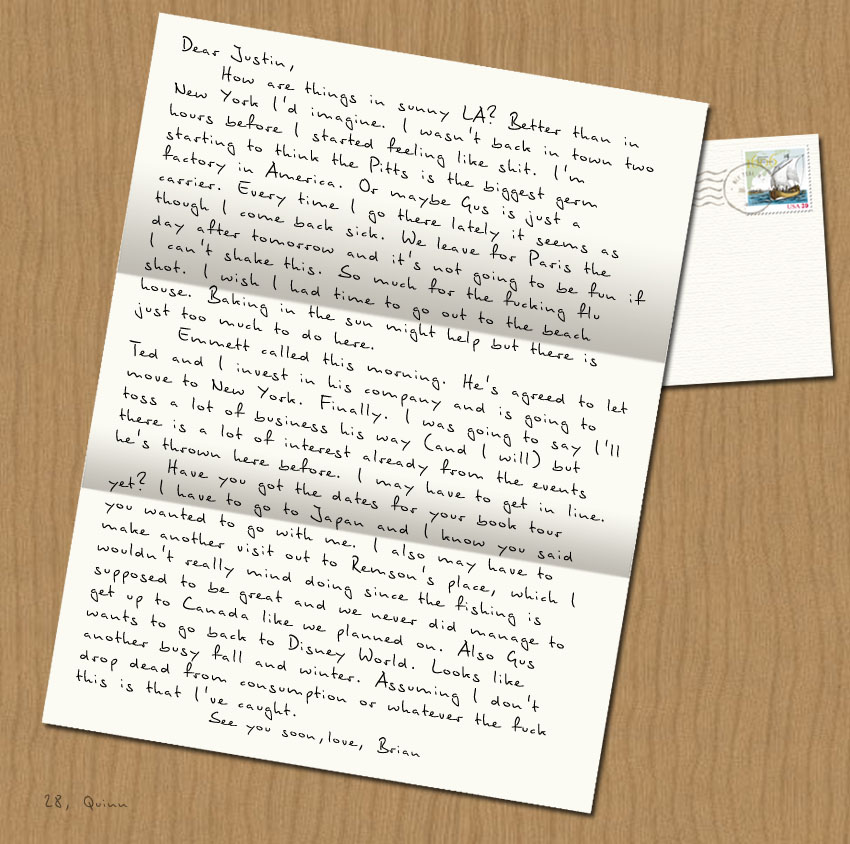 Dear Justin,
How are things in sunny LA? Better than in
New York I'd imagine. I wasn't back in town two
hours before I started feeling like shit. I'm
starting to think the Pitts is the biggest germ
factory in America. Or maybe Gus is just a
carrier. Every time I go there lately it seems as
though I come back sick. We leave for Paris the
day after tomorrow and it's not going to be fun if
I can't shake this. So much for the fucking flu
shot. I wish I had time to go out to the beach
house. Baking in the sun might help but there is
just too much to do here.
Emmett called this morning. He's agreed to let
Ted and I invest in his company and is going to
move to New York. Finally. I was going to say I'll
toss a lot of business his way (and I will) but
there is a lot of interest already from the events
he's thrown here before. I may have to get in line.
Have you got the dates for your book tour
yet? I have to go to Japan and I know you said
you wanted to go with me. I also may have to
make another visit out to Remson's place, which I
wouldn't really mind doing since the fishing is
supposed to be great and we never did manage to
get up to Canada like we planned on. Also Gus
wants to go back to Disney World. Looks like
another busy fall and winter. Assuming I don't
drop dead from consumption or whatever the fuck
this is that I've caught.
See you soon, love, Brian
USA 39
28, Quinn